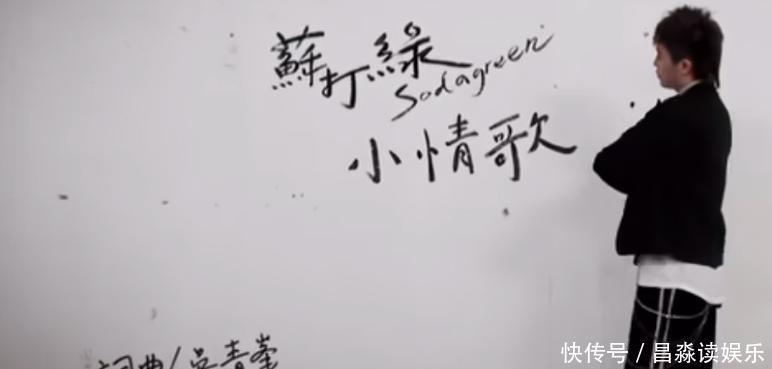 蘇打綠
Sodagreen
小情歌
詞曲/吳青峯
快传号/昌淼读娱乐